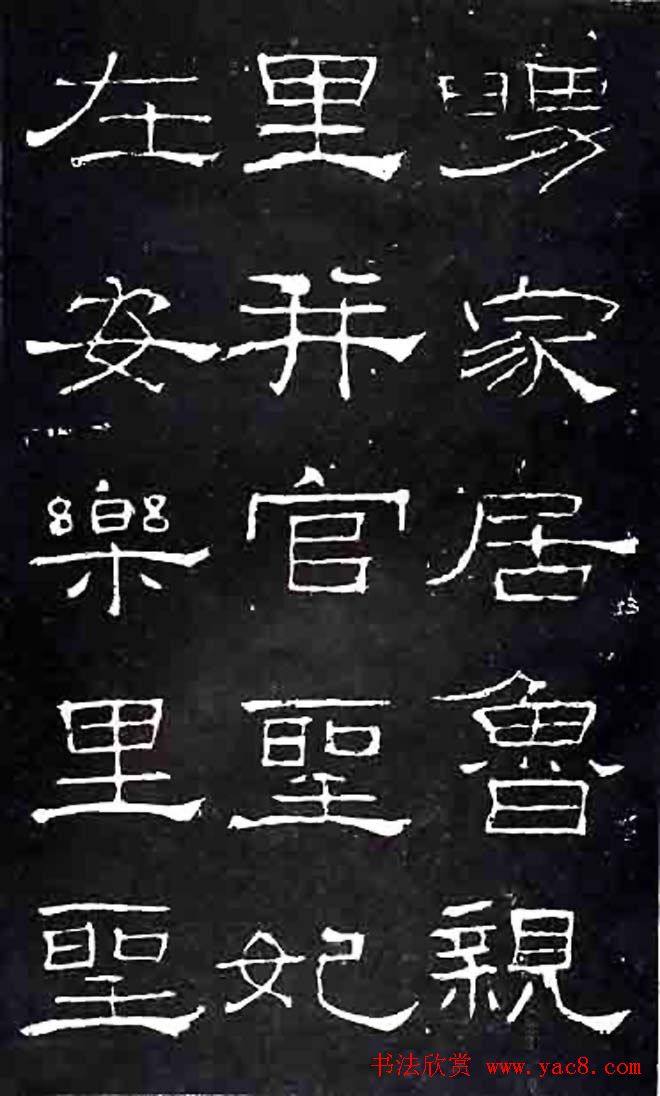 舅家居魯親
里并官聖妃
在安樂里聖
书法欣赏 www.yac8.com